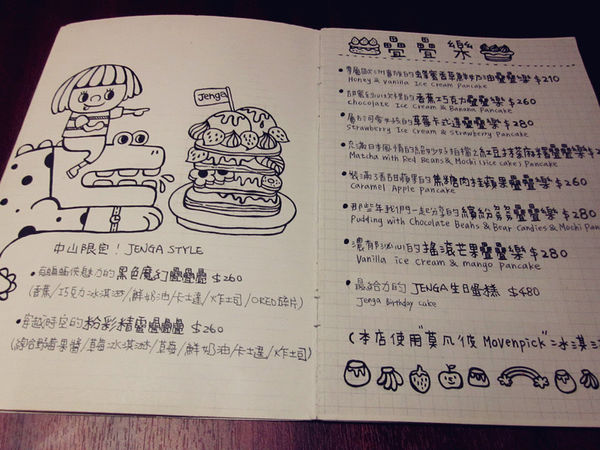 Jenga
中山限定！JENGA STYLE
魅力的黑色魔幻疊疊疊 $260
(香蕉/巧克力冰淇淋/鮮奶油/卡士達/炸土司/OREO碎片)
穿越時空的粉彩精靈疊疊疊 $260
(綜合野莓果醬/草莓冰淇淋/草莓/鮮奶油/卡士達/炸土司)
疊疊樂
蜂蜜香草鮮奶油疊疊樂 $210
Honey & Vanilla Ice Cream Pancake
香蕉巧克力疊疊樂 $260
chocolate Ice Cream & Banana Pancake
草莓卡式達疊疊樂 $280
Strawberry Ice Cream & Strawberry Pancake
充滿日本風情的紅豆抹茶麻糬疊疊樂 $2
Matcha with Red Beans & Mochi (rice cake) Pancake
裝滿了香甜蘋果的焦糖肉桂蘋果疊疊樂 $260
Caramel Apple Pancake
那些年我們一起吃的繽紛ㄋㄟㄋㄟ疊疊樂 $280
Pudding with Chocolate Beans & Bear Candies & Mochi Pan
濃郁冰心的搖滾芒果疊疊樂 $280
Vanilla ice cream & mango Pancake
最給力的 JENGA生日蛋糕 $480
Jenga Birthday Cake
(本店使用"莫凡彼Movenpick"冰淇淋